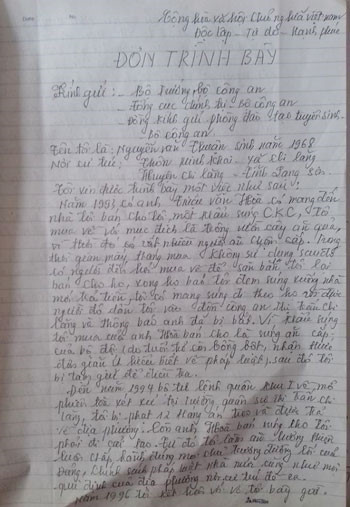 Cộng hòa xã hội chủ nghĩa việt nam
Độc lập - Tự do - Hạnh phúc
ĐƠN TRÌNH BÀY
Kính gửi: - Bộ trưởng bộ công an
- Tổng cục chính trị Bộ công an
- Đồng kính gửi phòng đào tạo tuyển sinh
Bộ công an
Tên tôi là: Nguyễn văn Thuân sinh năm 1968
Nơi cư trú: Thôn minh khai - xã chi lăng
Huyện chi lăng - Tỉnh Lạng Sơn
Tôi xin được trình bày một việc như sau:
Năm 1993 có anh Triệu văn Hoà có mang đến
nhà tôi bán cho tôi một khẩu súng C.K.C, Tôi
mua về với mục đích là trông vườn cây ăn quả,
vì thời đó có rất nhiều người ăn trộm cắp. Trong
thời gian mấy tháng mua không sử dụng sau đó
có người đến hỏi mua về để săn bắn tôi lại
bán cho họ, xong họ bảo tôi đem súng xuống nhà
mới trả tiền, tôi có mang súng đi theo họ thì được
người đó dẫn tôi vào đồn công an thị trấn chi
lăng và thông báo anh đã bị bắt. Vì khẩu súng
tôi mua của anh Hoà bán cho là súng ăn cắp
của bộ đội (do tuổi trẻ còn bồng bột, nhận thức
đơn giản ít hiểu biết về pháp luật), sau đó tôi
bị tạm giữ để điều tra.
Đến năm 1994 bộ tư lệnh quân khu I về mở
phiên toà xét xử tại trường quân sự thị trấn chi
lăng, tôi bị phạt 12 tháng án treo và được trả
về địa phương. Còn anh Hoà bán súng cho tôi
phải đi cải tạo. Từ đó tôi làm ăn lương thiện
luôn chấp hành đúng mọi chủ trương đường lối của
Đảng, chính sách pháp luật nhà nước cũng như mọi
qui định của địa phương nơi cư trú đề ra.
Năm 1996 tôi